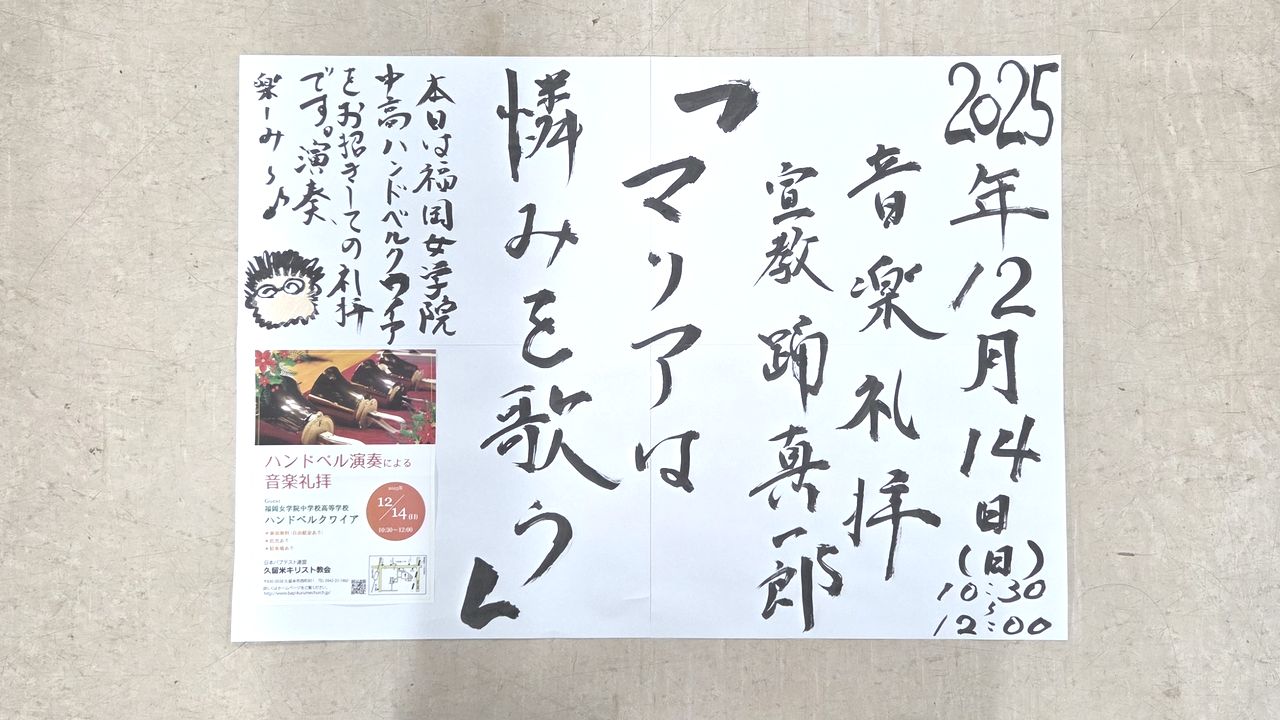 2025年12月14日(日)
10:30
〜
12:00
音楽礼拝
宣教 踊真一郎
「マリアは
憐みを歌う」
本日は福岡女学院
中高ハンドベルクワイア
をお招きしての礼拝
です。演奏、
楽しみ〜♪
ハンドベル演奏による
音楽礼拝
2025年
12/14(日)
10:30～12:00
Guest
福岡女学院中学校高等学校
ハンドベルクワイア
日本バプテスト連盟
久留米キリスト教会